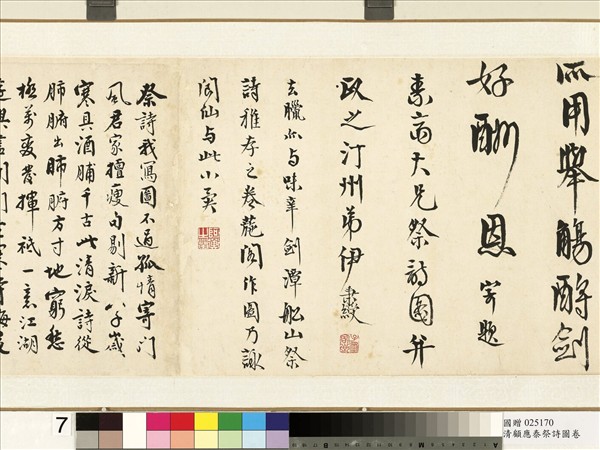 用舉觴酹劍
好酬恩 寄題
素大兄祭詩圖并
政之汀州弟伊秉綬
去臘亦与味辛劍潭船山祭
詩雅存之卷葹閣作圖乃詠
閬仙与此小異
祭詩我寫圖不過孤情寄门
風君家擅瘦句剔新八字歲
寒具酒脯千古此清淚詩從
肺腑出肺腑方寸地窮愁
發揮祇一哀江湖
7
國贈 025170
清顧應泰祭詩圖卷